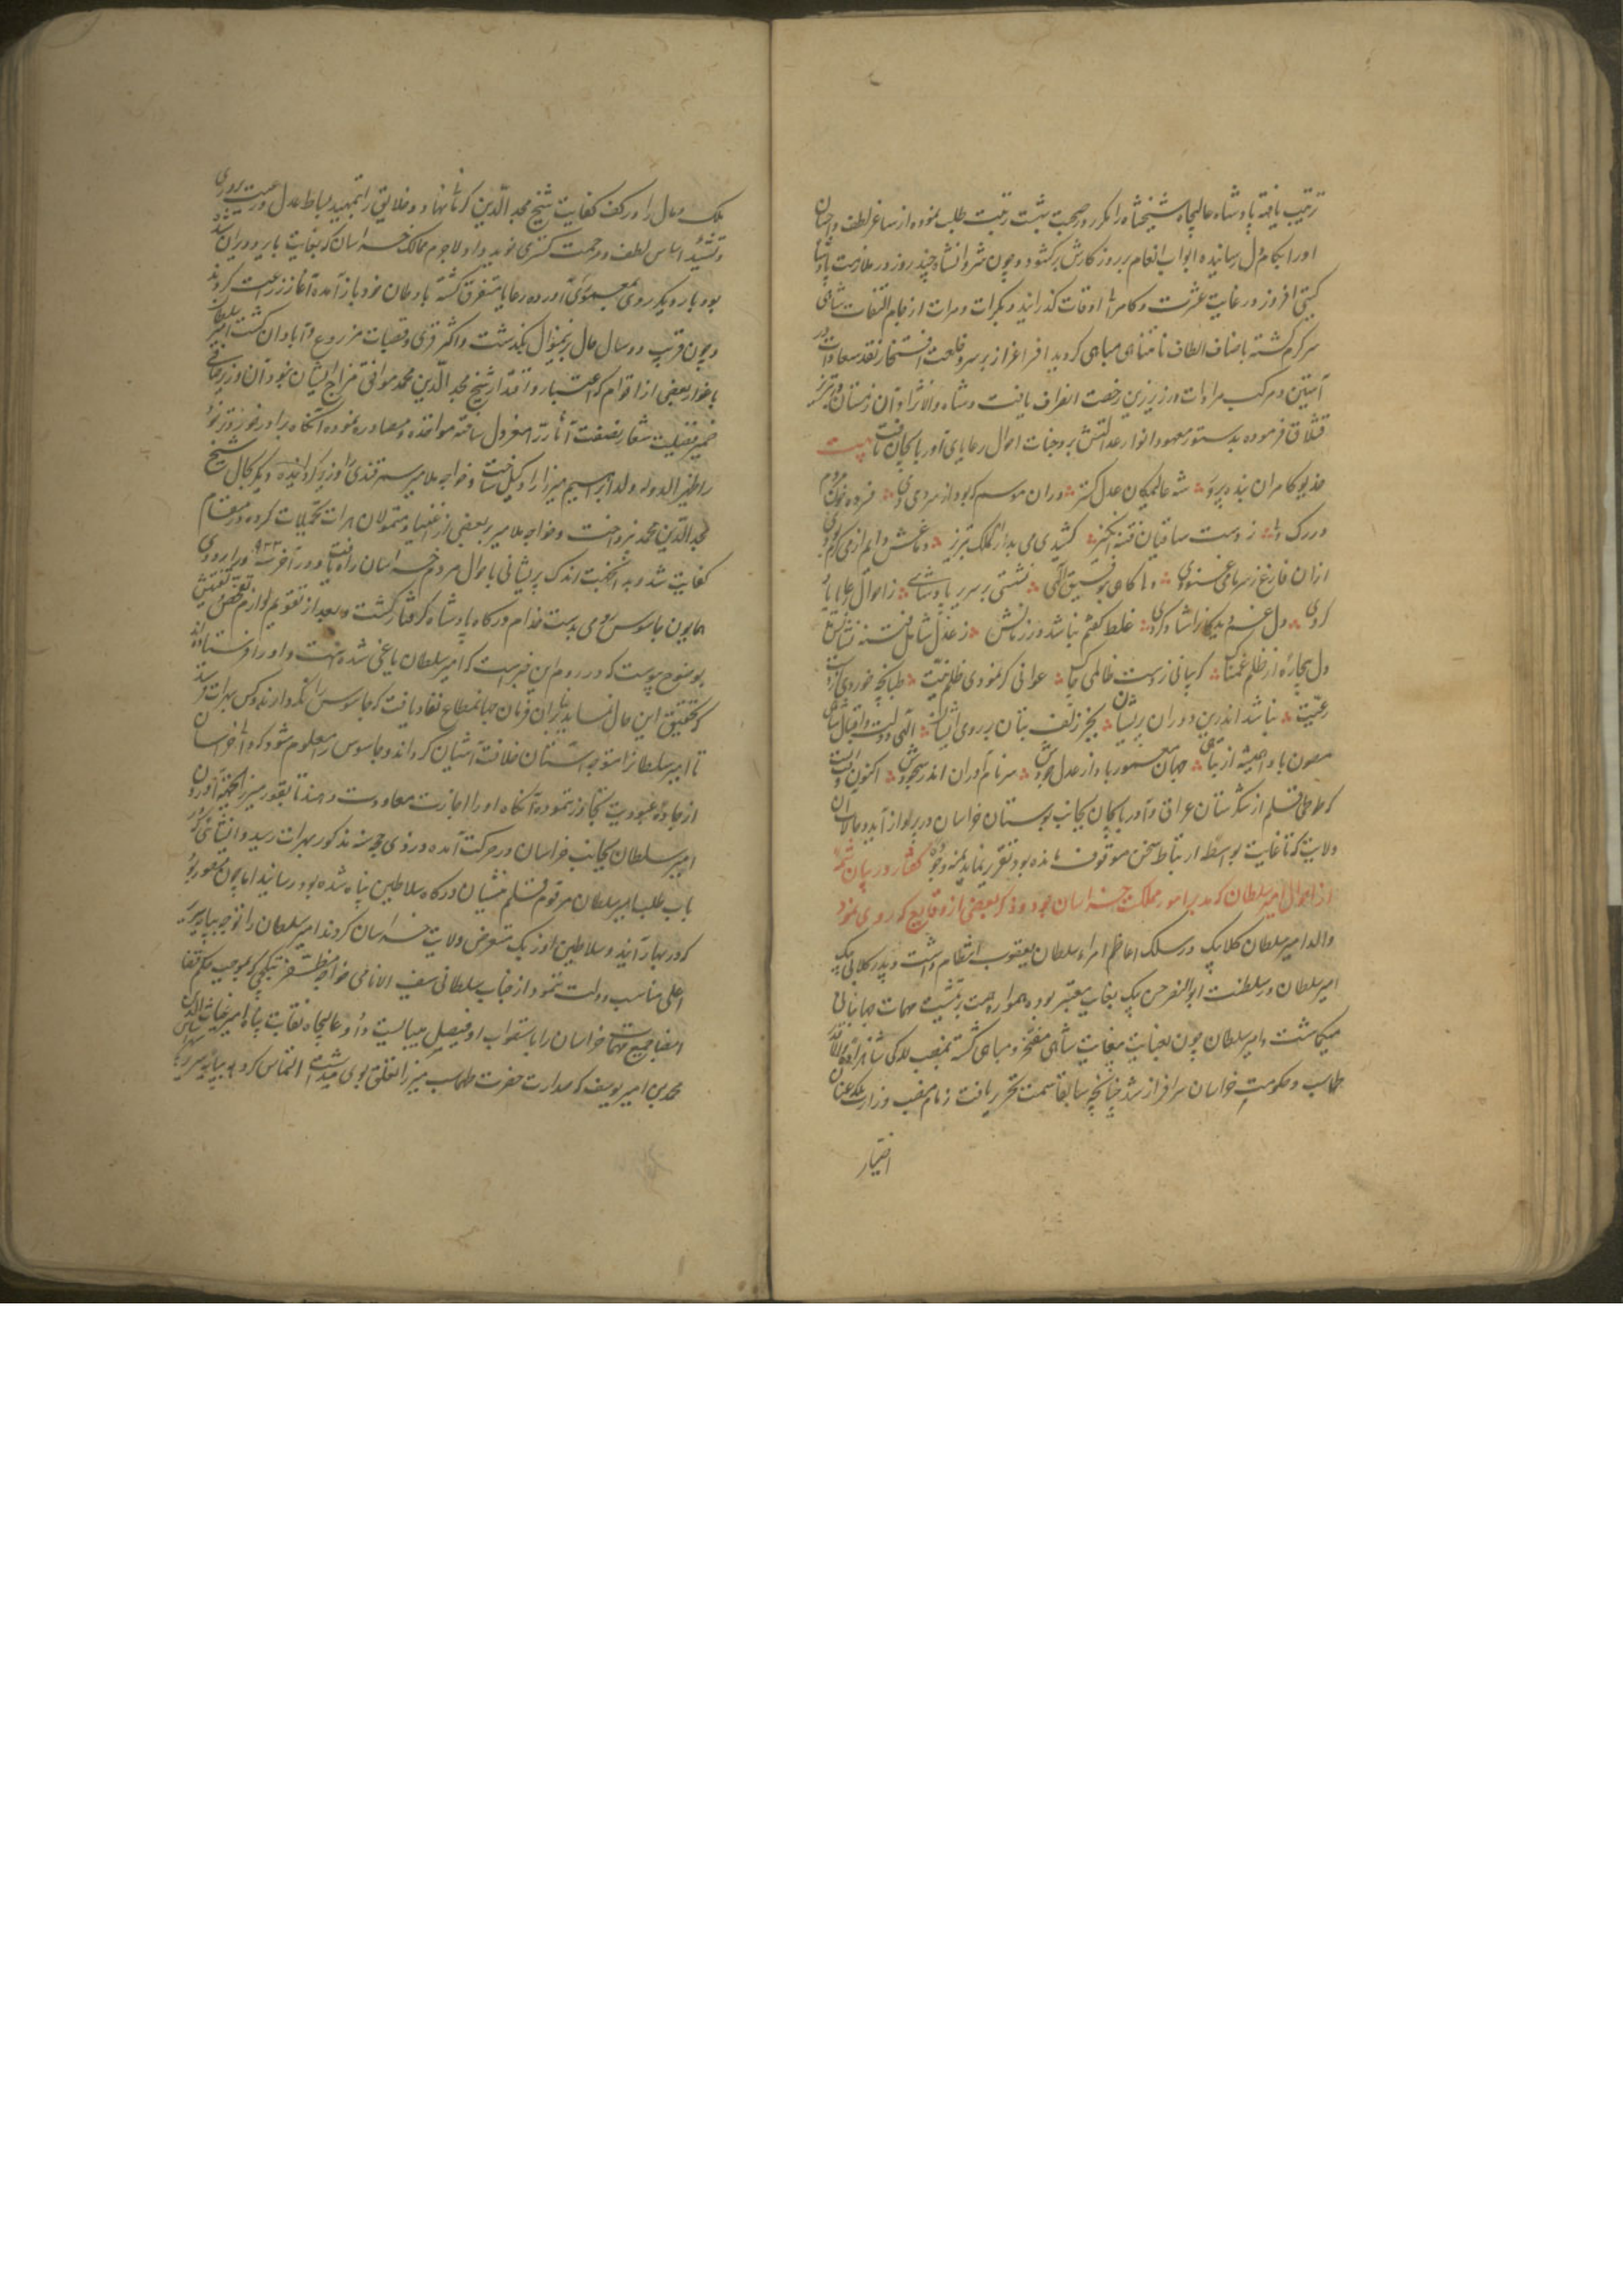 ترتیب یافته پادشاه عالیجاه شیخشاه را مکرر در صحبت بهشت رتبت طلب نموده از ساغر لطف و احسان
او را بکام دل رسانیده ابواب انعام بر روزکارش برکشود و چون شروانشاه چند روز در ملازمت پادشاه
کیتی افروز در غایت عشرت و کامرانی اوقات کذرانید و بکرات و مرات از جام التفات شاهی
سرکرم کشته باصناف الطاف نامتناهی مباهی کردید افسر اعزاز بر سر و خلعت افتخار نقد سعادت در
آستین و مرکب مرادات در زیر زین رخصت انصراف یافت و شاه والانژاد آن زمستان در تبریز
قشلاق فرموده بدستور معهود انوار عدالتش بر وجنات احوال رعایای آذربایجان تافت بیت
خدیو کامران بنده پرور شه عالمیکان عدل کستر دران موسم که بود از سردی دی فسرده خون مردم
در رک و پی ز دست ساقیان فتنه انکیز کشیدی می بدارالملک تبریز دماغش دایم از می کرم بودی
ازان فارغ ز سرما می غنودی و ماکاهی بتوفیق الهی نشستی بر سریر پادشاهی ز احوال رعایا یاد
کردی دل غمدیدکان را شاد کردی غلط کفتم نباشد در زمانش ز عدل شامل فتنه نشانش
دل بیچاره از ظلم غمناک کریبانی ز دست ظالمی چاک عوانی کر نمودی ظلم نیت طپانچه خوردی از دست
رعیت نباشد اندرین دوران پریشان بجز زلف بتان بر روی ایشان الهی دولت و اقبال شاهی
مصون باد همیشه از تباهی جهان معمور باد از عدل وجودش سرنام آوران اندر سجودش اکنون وقت است
که طوطی قلم از شکرستان عراق و آذربایجان بجانب بوستان خراسان در پرواز آید و حالات آن
ولایت که تا غایت بواسطه ارتباط سخن موقوف مانده بود تقریر نماید بمنه وجوده کفتار در بیان شمه
از احوال امیر سلطان که مدبر امور مملکت خراسان بود و ذکر بعضی از وقایع که روی نمود
والد امیر سلطان کلابی بیک در سلک اعاظم امراء سلطان یعقوب انتظام داشت و پدر کلابی بیک
امیر سلطان در سلطنت ابوالنصر حسن بیک بغایت معتبر بوده همواره همت بر تمشیت مهمات جهانبانی
میکماشت و امیر سلطان چون بعنایت بیغایت شاهی مفتخر و مباهی کشته بمنصب للکی شاهزاده کامکار
طهماسب و حکومت خراسان سرافراز شد چنانچه سابقا سمت تحریر یافت زمام منصب وزارت بلکه عنان
اختیار
ملک و مال را در کف کفایت شیخ مجدالدین کرمانی نهاد و خلایق را بتمهید بساط عدل و رعیت پروری
و تشیید اساس لطف و مرحمت کستری نوید داد و لاجرم ممالک خراسان که بغایت بایر و ویران شده
بود بار دیکر روی بمعموری آورده رعایا متفرق کشته باوطان خود بازآمده آغاز زراعت کردند
و چون قریب دو سال حال برینمنوال بکذشت و اکثر قری و قصبات مزروع و آبادان کشت امیر سلطان
باغوا بعضی از اقوام که اعتبار و اقتدار شیخ مجدالدین محمد موافق مزاج ایشان نبود آن وزیر صافی
ضمیر فضیلت شعار نصفت آثار را معزول ساخته مواخذه و مصادره نموده آنکاه برادر خود
را ظهیرالدوله ولد ابراهیم میرزا را وکیل ساخت و خواجه ملا میر سمرقندی را وزیر کردانیده و دیکر بحال شیخ
مجدالدین محمد نپرداخت و خواجه ملا میر بر بعضی از اغنیاء و متمولان هرات تحمیلات کرده در مقام
کفایت شد و بدین جهت اندک پریشانی باحوال مردم خراسان راه یافت و در آخر سنه ٩٢٢ در اردوی
همایون جاسوس رومی بدست خدام درکاه پادشاه کرفتار کشت و بعد از تقدیم لوازم تفحص و تفتیش
بوضوح پیوست که در روم این خبریست که امیر سلطان یاغی شده است و او را فرستاده اند
که تحقیق این حال نماید بنابران فرمان جهانمطاع نفاذ یافت که جاسوس را نکه دارند و کس بهرات فرستند
تا امیر سلطانرا متوجه آستان خلافت آشیان کرداند و جاسوس را معلوم شود که والی خراسان
از جاده عبودیت تجاوز ننموده آنکاه او را اجازت معاودت دهند تا بقور میرزا
امیر سلطان بجانب خراسان در حرکت آمده در ذی حجه سنه مذکور بهرات رسید و انشائی که در
باب طلب امیر سلطان مرقوم قلم منشیان درکاه سلاطین پناه شده بود رسانید اما چون مقرر بود
که در بهار آیند و سلاطین اوزبک متعرض ولایت خراسان کردند امیر سلطان را توجه بپایه سریر
اعلی مناسب دولت ننمود از جناب سلطانی سیف الانامی خواجه مظفر تبکچی که بموجب حکم قضا
امضا جمیع مهمات خراسان را باستصواب او فیصل میبایست داد و عالیجاه نقابت پناه امیر غیاث الدین
محمد بن امیر یوسف که صدارت حضرت طهماسب میرزا تعلق بوی میداشت التماس کرد که بپایه سریر